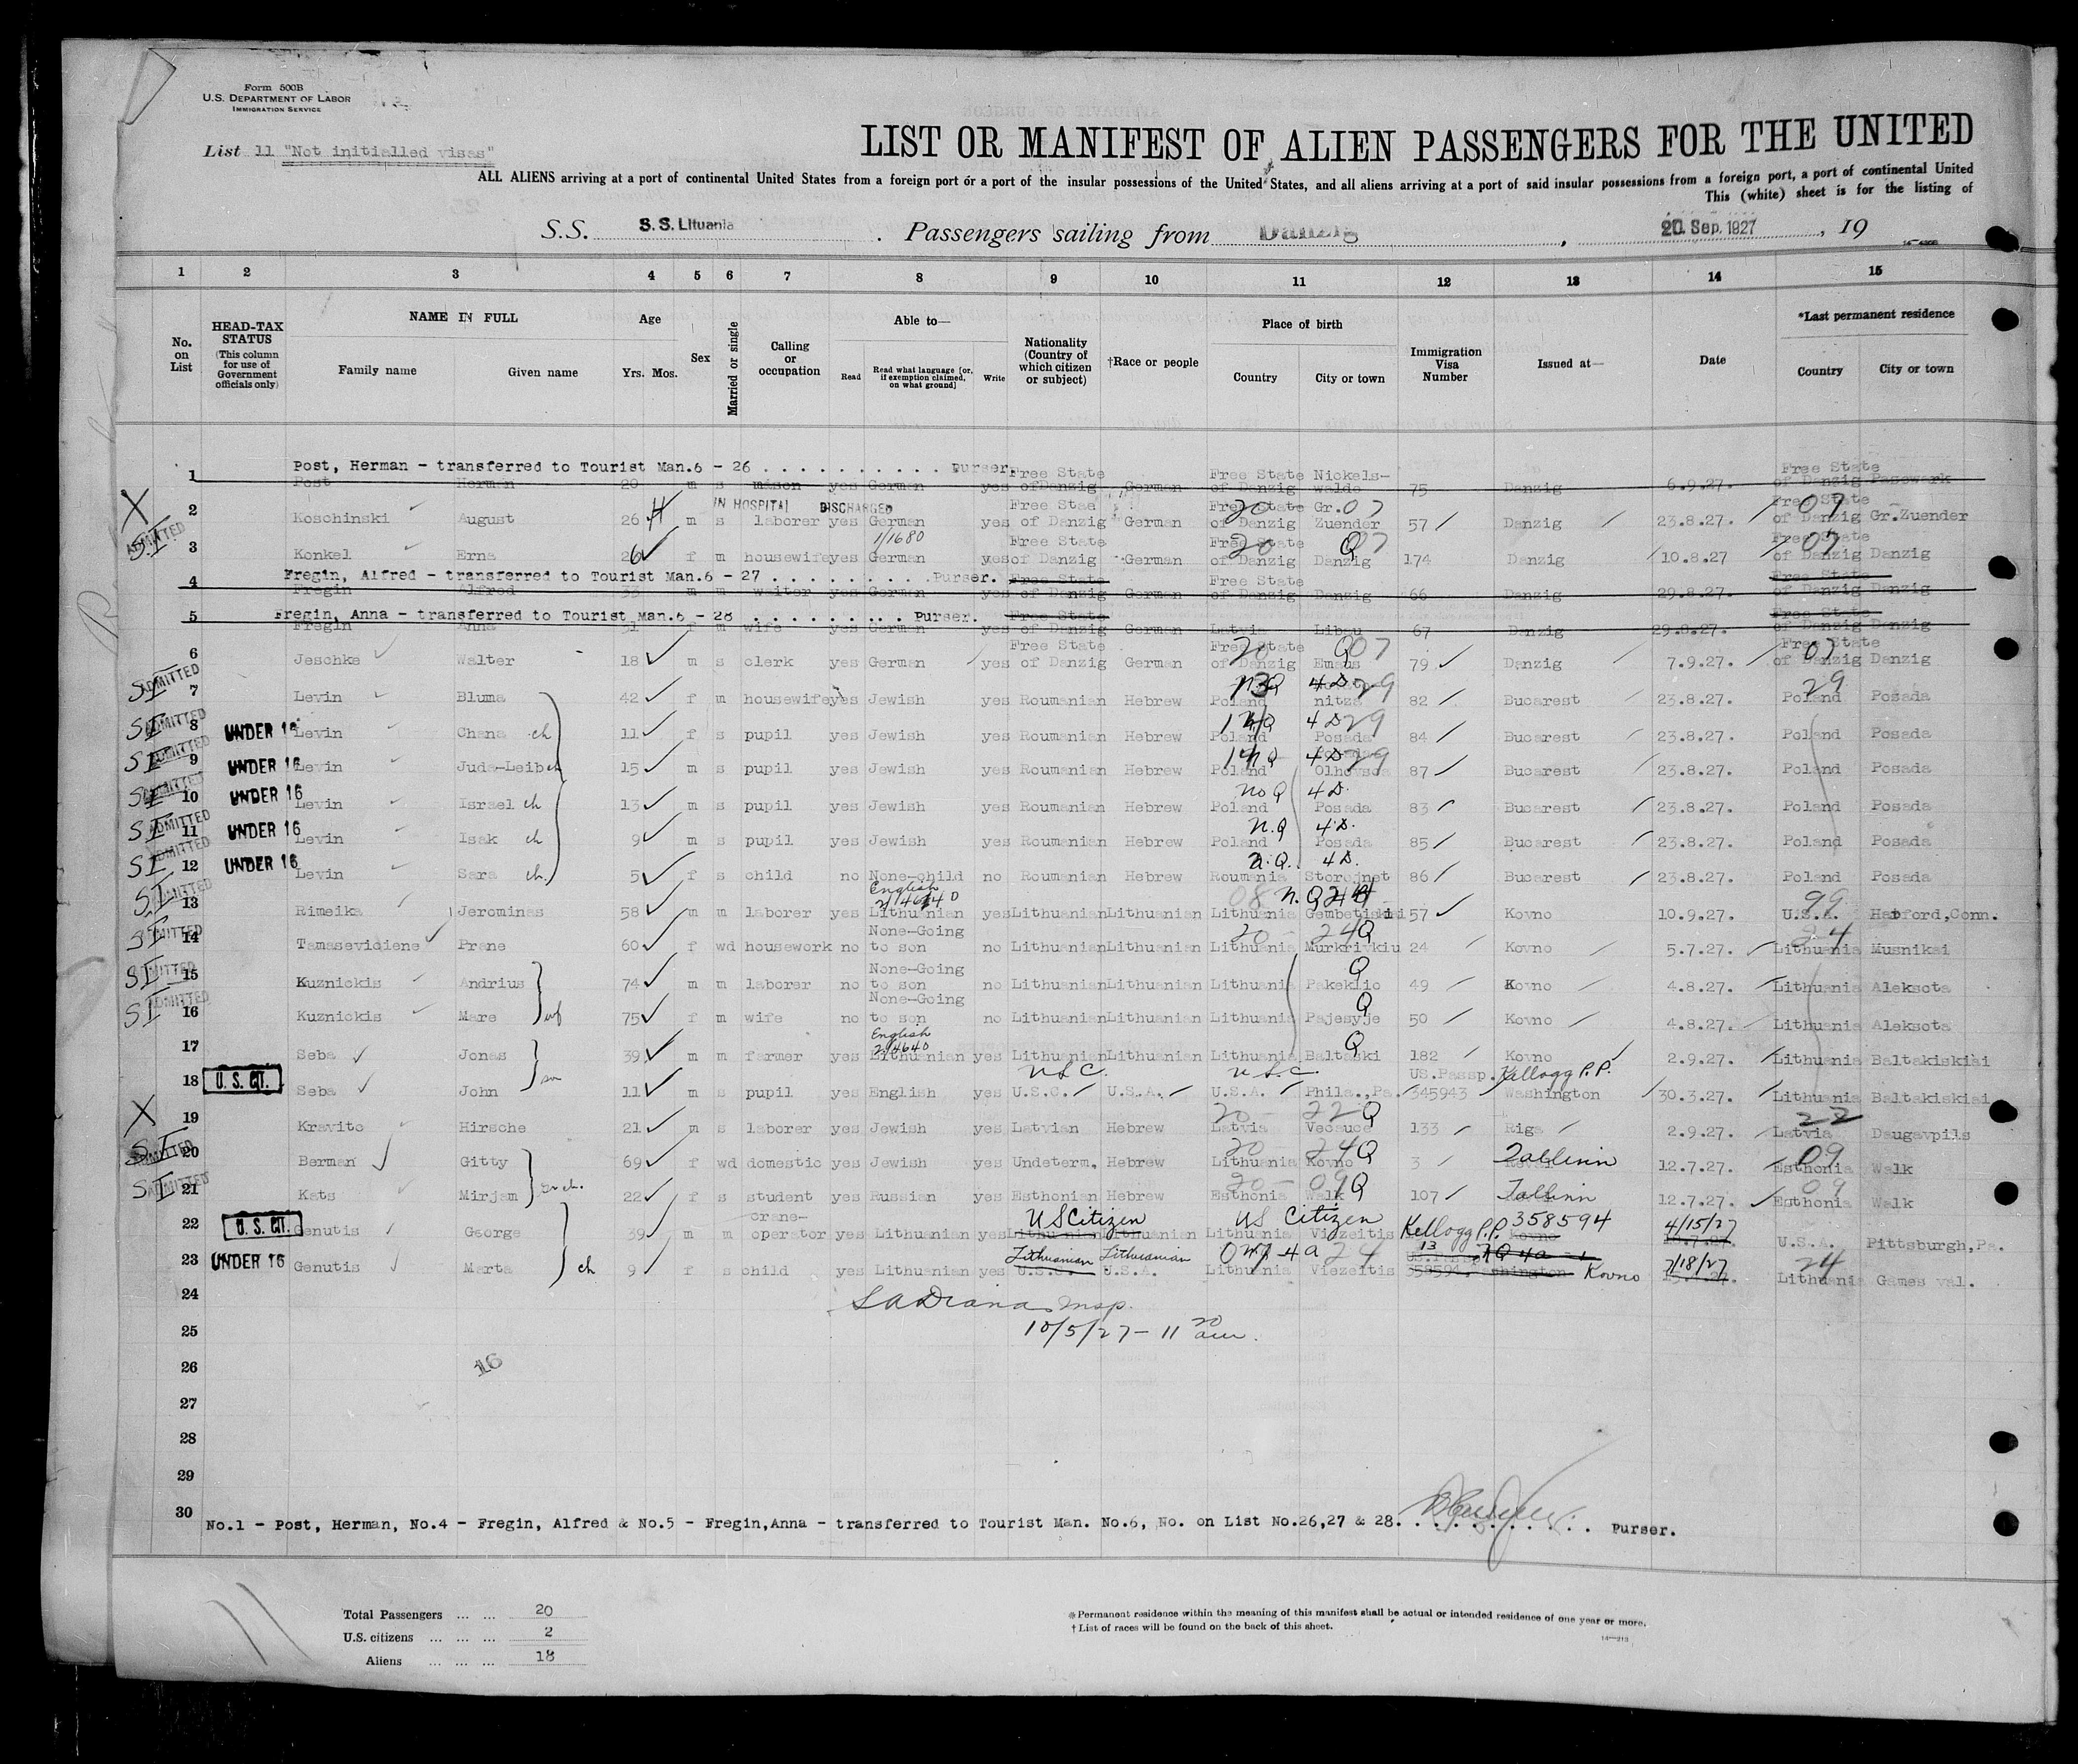 Form 500B
U.S. DEPARTMENT OF LABOR
IMMIGRATION SERVICE
List 11 "Not initialled visas"
LIST OR MANIFEST OF ALIEN PASSENGERS FOR THE UNITED
ALL ALIENS arriving at a port of continental United States from a foreign port or a port of the insular possessions of the United States, and all aliens arriving at a port of said insular possessions from a foreign port, a port of continental United
This (white) sheet is for the listing of
S.S. S.S. Lituania. Passengers sailing from Danzig, 20. Sep. 1927, 19
1 2 3 4 5 6 7 8 9 10 11 12 13 14 15
No. on List
HEAD-TAX STATUS (This column for use of Government officials only)
NAME IN FULL
Family name Given name
Age
Yrs. Mos.
Sex
Married or single
Calling or occupation
Able to—
Read Read what language [or, if exemption claimed, on what ground] Write
Nationality (Country of which citizen or subject)
†Race or people
Place of birth
Country City or town
Immigration Visa Number
Issued at—
Date
*Last permanent residence
Country City or town
Post, Herman - transferred to Tourist Man.6 - 26 . . . . . . . . . . Purser.
1 Post Herman 20 m s mason yes German yes Free State of Danzig German Free State of Danzig Nickelswalde 75 Danzig 6.9.27. Free State of Danzig Pasewark
IN HOSPITAL DISCHARGED
X 2 Koschinski August 26 H m s laborer yes German yes Free Stae of Danzig German Free State of Danzig 20 Gr. Zuender 07 57 Danzig 23.8.27. Free State of Danzig 07 Gr.Zuender
SI ADMITTED 3 Konkel Erna 26 f m housewife yes German 1/1680 yes Free State of Danzig German Free State of Danzig 20 Danzig Q07 174 Danzig 10.8.27 Free State of Danzig 07 Danzig
Fregin, Alfred - transferred to Tourist Man.6 - 27 . . . . . . . . . Purser.
4 Fregin Alfred 33 m m waiter yes German yes Free State of Danzig German Free State of Danzig Danzig 66 Danzig 29.8.27. Free State of Danzig Danzig
Fregin, Anna - transferred to Tourist Man.6 - 28 . . . . . . . . . Purser.
5 Fregin Anna 31 f m wife yes German yes Free State of Danzig German Latvia Libau 67 Danzig 29.8.27. Free State of Danzig Danzig
6 Jeschke Walter 18 m s clerk yes German yes Free State of Danzig German Free State of Danzig 20 Emaus Q07 79 Danzig 7.9.27. Free State of Danzig 07 Danzig
SI ADMITTED 7 Levin Bluma 42 f m housewife yes Jewish yes Roumanian Hebrew Poland nitza 4D 29 82 Bucarest 23.8.27. Poland 29 Posada
SI ADMITTED 8 UNDER 16 Levin Chana ch 11 f s pupil yes Jewish yes Roumanian Hebrew Poland Posada 4D 29 84 Bucarest 23.8.27. Poland Posada
SI ADMITTED 9 UNDER 16 Levin Juda-Leib ch 15 m s pupil yes Jewish yes Roumanian Hebrew Poland 4D 29 87 Bucarest 23.8.27. Poland Posada
SI ADMITTED 10 UNDER 16 Levin Israel ch 13 m s pupil yes Jewish yes Roumanian Hebrew Poland No Q Posada 4D. 83 Bucarest 23.8.27. Poland Posada
SI ADMITTED 11 UNDER 16 Levin Isak ch 9 m s pupil yes Jewish yes Roumanian Hebrew Poland N.Q Posada 4D. 85 Bucarest 23.8.27. Poland Posada
SI ADMITTED 12 UNDER 16 Levin Sara ch. 5 f s child no None-child no Roumanian Hebrew Roumania N.Q. Storojnet 4D. 86 Bucarest 23.8.27. Poland Posada
SI ADMITTED 13 Rimeika Jerominas 58 m m laborer yes English Lithuanian yes Lithuanian Lithuanian Lithuania 08 N.Q 57 Kovno 10.9.27. U.S.A. 99 Hatford, Conn.
SI ADMITTED 14 Tamaseviciene Prane 60 f wd housework no None-Going to son no Lithuanian Lithuanian Lithuania 20 - 24Q Murkrivkiu 24 Kovno 5.7.27. Lithuania 24 Musnikai
SI ADMITTED 15 Kuznickis Andrius 74 m m laborer no None-Going to son no Lithuanian Lithuanian Lithuania Pakeklio Q 49 Kovno 4.8.27. Lithuania Aleksota
SI ADMITTED 16 Kuznickis Mare wf 75 f m wife no None-Going to son no Lithuanian Lithuanian Lithuania Pajesyje Q 50 Kovno 4.8.27. Lithuania Aleksota
17 Seba Jonas 39 m m farmer yes English 2/4640 Lithuanian yes Lithuanian Lithuanian Lithuania Baltaski Q 182 Kovno 2.9.27. Lithuania Baltakiskiai
18 U.S. CIT. Seba John son 11 m s pupil yes English yes USC. U.S.C. U.S.A. USC. U.S.A. Phila., Pa. US.Passp. 345943 Kellogg P.P. Washington 30.3.27. Lithuania Baltakiskiai
X 19 Kravitc Hirsche 21 m s laborer yes Jewish yes Latvian Hebrew Latvia 20 - 22Q Vecauce 133 Riga 2.9.27. Latvia 22 Daugavpils
SI ADMITTED 20 Berman Gitty 69 f wd domestic yes Jewish yes Undeterm. Hebrew Lithuania 20 - 24Q Kovno 3 Tallinn 12.7.27. Esthonia 09 Walk
SI ADMITTED 21 Kats Mirjam gr ch. 22 f s student yes Russian yes Esthonian Hebrew Esthonia 20 - 09Q Walk 107 Tallinn 12.7.27. Esthonia 09 Walk
22 U.S. CIT. Genutis George 39 m m crane-operator yes Lithuanian yes US Citizen Lithuanian Lithuanian US Citizen Lithuania Viezeitis Kellogg P.P. 358594 Kovno 4/15/27 U.S.A. Pittsburgh, Pa.
23 UNDER 16 Genutis Marta ch 9 f s child yes Lithuanian yes Lithuanian U.S.C. Lithuanian U.S.A. Lithuania Viezeitis 4a 24 13 358594 Kovno 7/18/27 Lithuania 24 Games val.
24
Insp.
25
10/5/27 - 11 20 am.
26
16
27
28
29
30
No.1 - Post, Herman, No.4 - Fregin, Alfred & No.5 - Fregin,Anna - transferred to Tourist Man. No.6, No. on List No.26,27 & 28. . . . . . . . . . . . Purser.
Total Passengers ... ... 20
U.S. citizens ... ... ... 2
Aliens ... ... ... 18
* Permanent residence within the meaning of this manifest shall be actual or intended residence of one year or more.
† List of races will be found on the back of this sheet.